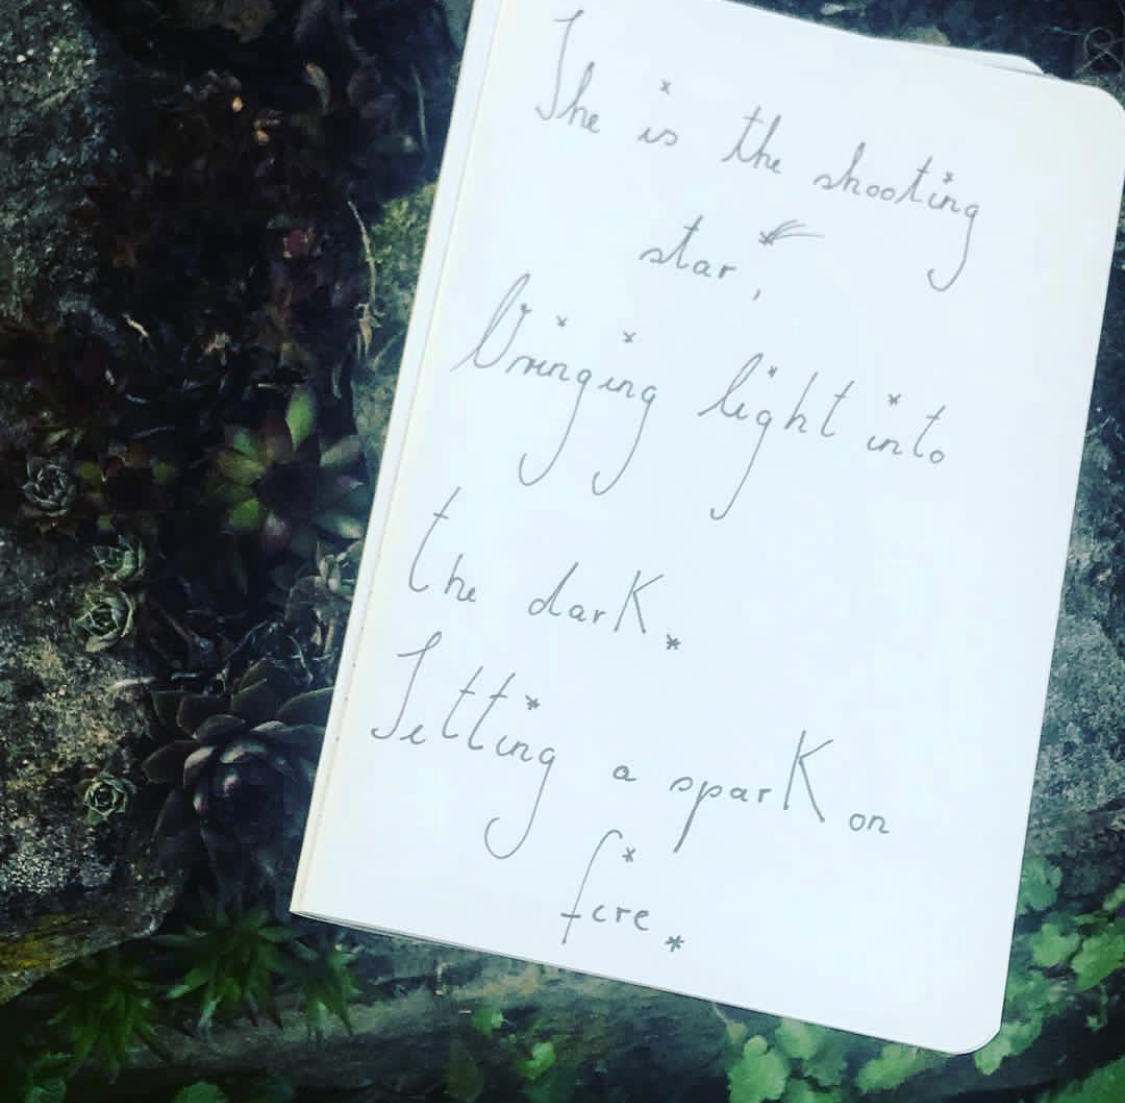 She is the shooting
star,
Bringing light into
the dark.
Setting a spark on
fire.